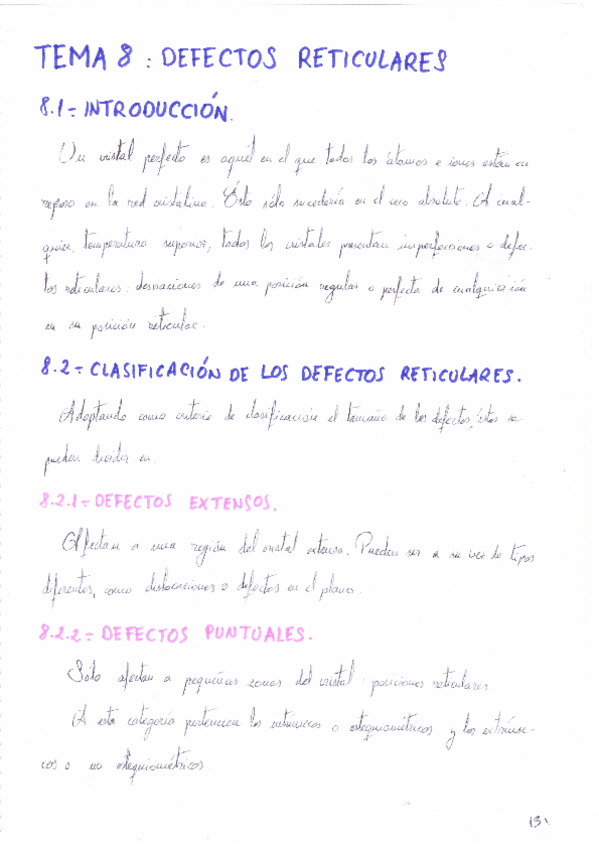 TEMA 8 : DEFECTOS RETICULARES
8.1.- INTRODUCCIÓN.
Un cristal perfecto es aquél en el que todos los átomos e iones están en
reposo en la red cristalina. Ésto sólo sucedería en el cero absoluto. A cual-
quier temperatura superior, todos los cristales presentan imperfecciones o defec-
tos reticulares: desviaciones de una posición regular o perfecta de cualquier ión
en su posición reticular.
8.2.- CLASIFICACIÓN DE LOS DEFECTOS RETICULARES.
Adoptando como criterio de clasificación el tamaño de los defectos, éstos se
pueden dividir en
8.2.1.- DEFECTOS EXTENSOS.
Afectan a una región del cristal extensa. Pueden ser a su vez de tipos
diferentes, como dislocaciones o defectos en el plano.
8.2.2.- DEFECTOS PUNTUALES.
Sólo afectan a pequeñas zonas del cristal: posiciones reticulares.
A esta categoría pertenecen los intrínsecos o estequiométricos y los extrínse-
cos o no estequiométricos.
131